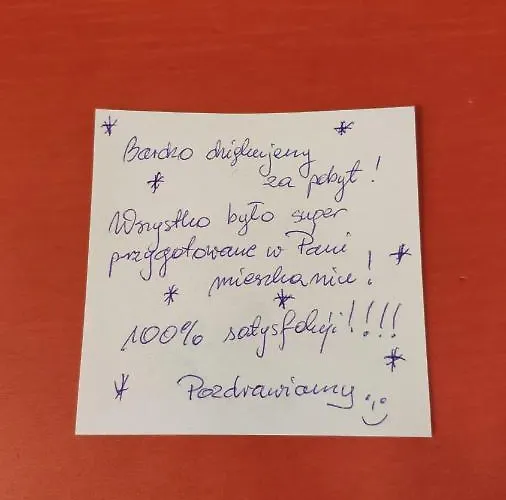 Bardzo dziękujemy
za pobyt!
Wszystko było super
przygotowane w Pani
mieszkaniu!
100% satysfakcji!!!!
Pozdrawiamy :)